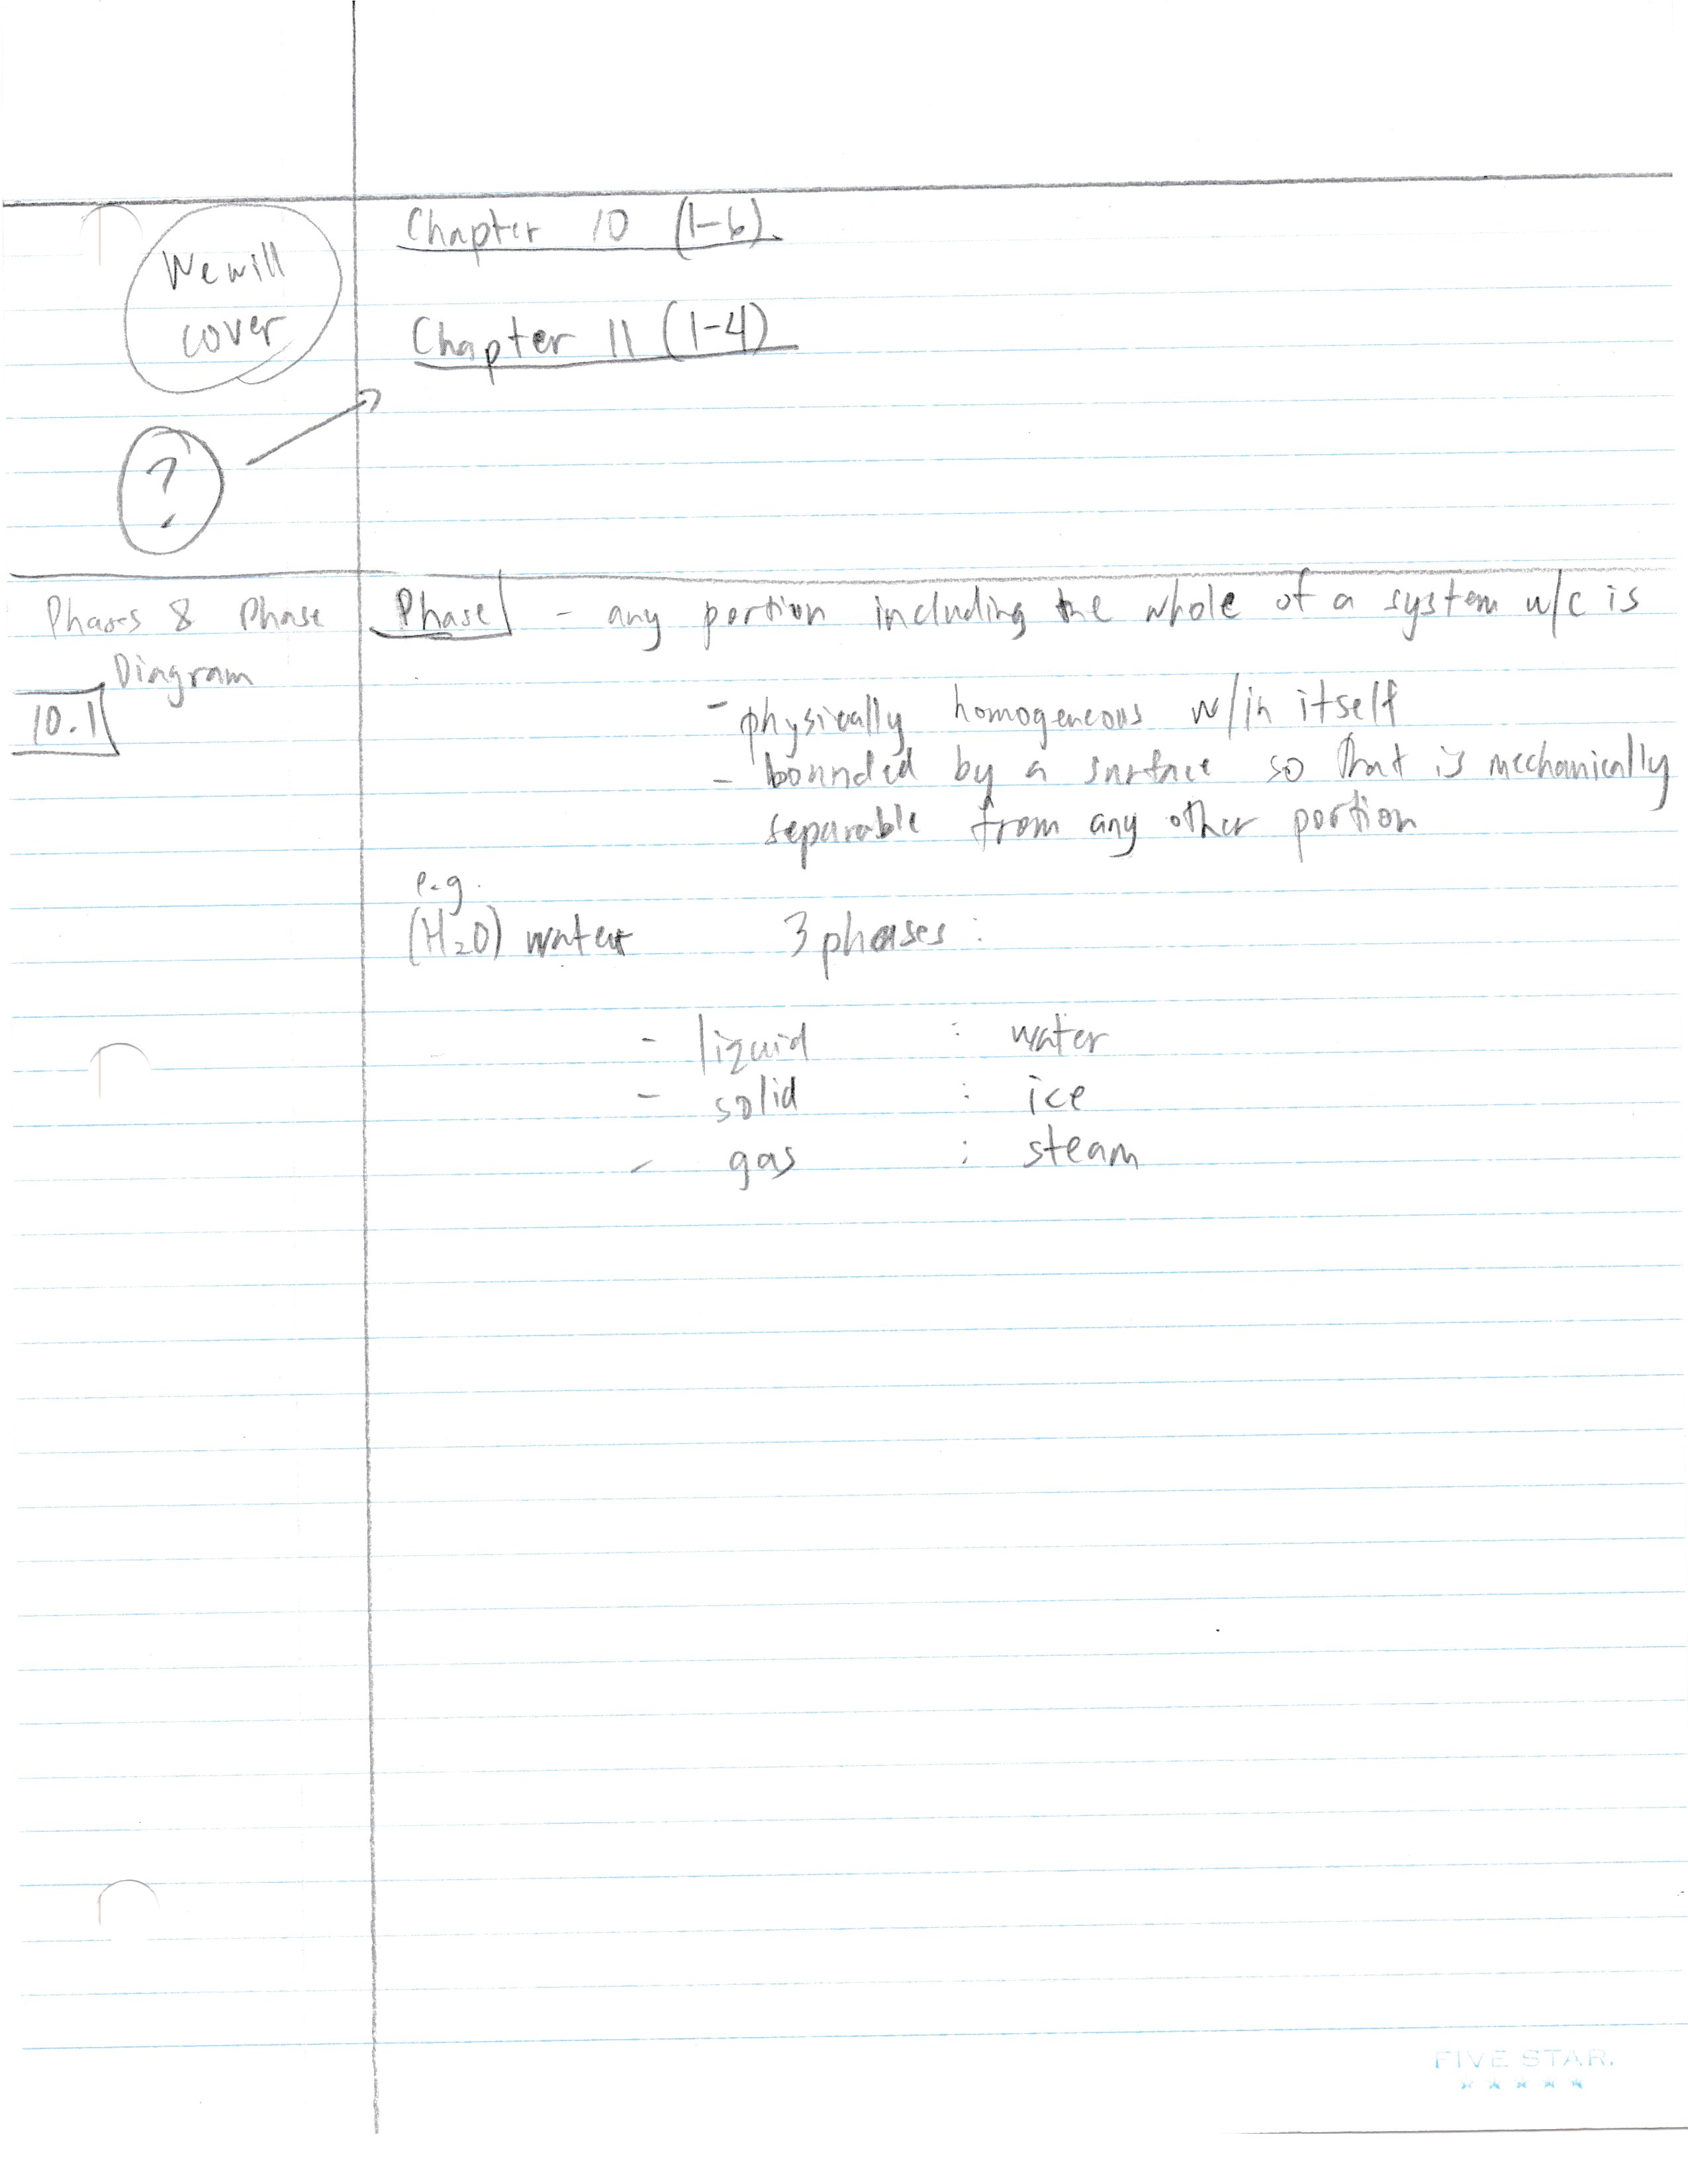 Chapter 10 (1-6)
We will
cover
Chapter 11 (1-4)
?
Phases & Phase
Diagram
10.1
Phase - any portion including the whole of a system w/c is
- physically homogeneous w/in itself
- bounded by a surface so that is mechanically
separable from any other portion
e.g.
(H₂O) water 3 phases :
- liquid : water
- solid : ice
- gas : steam
FIVE STAR.